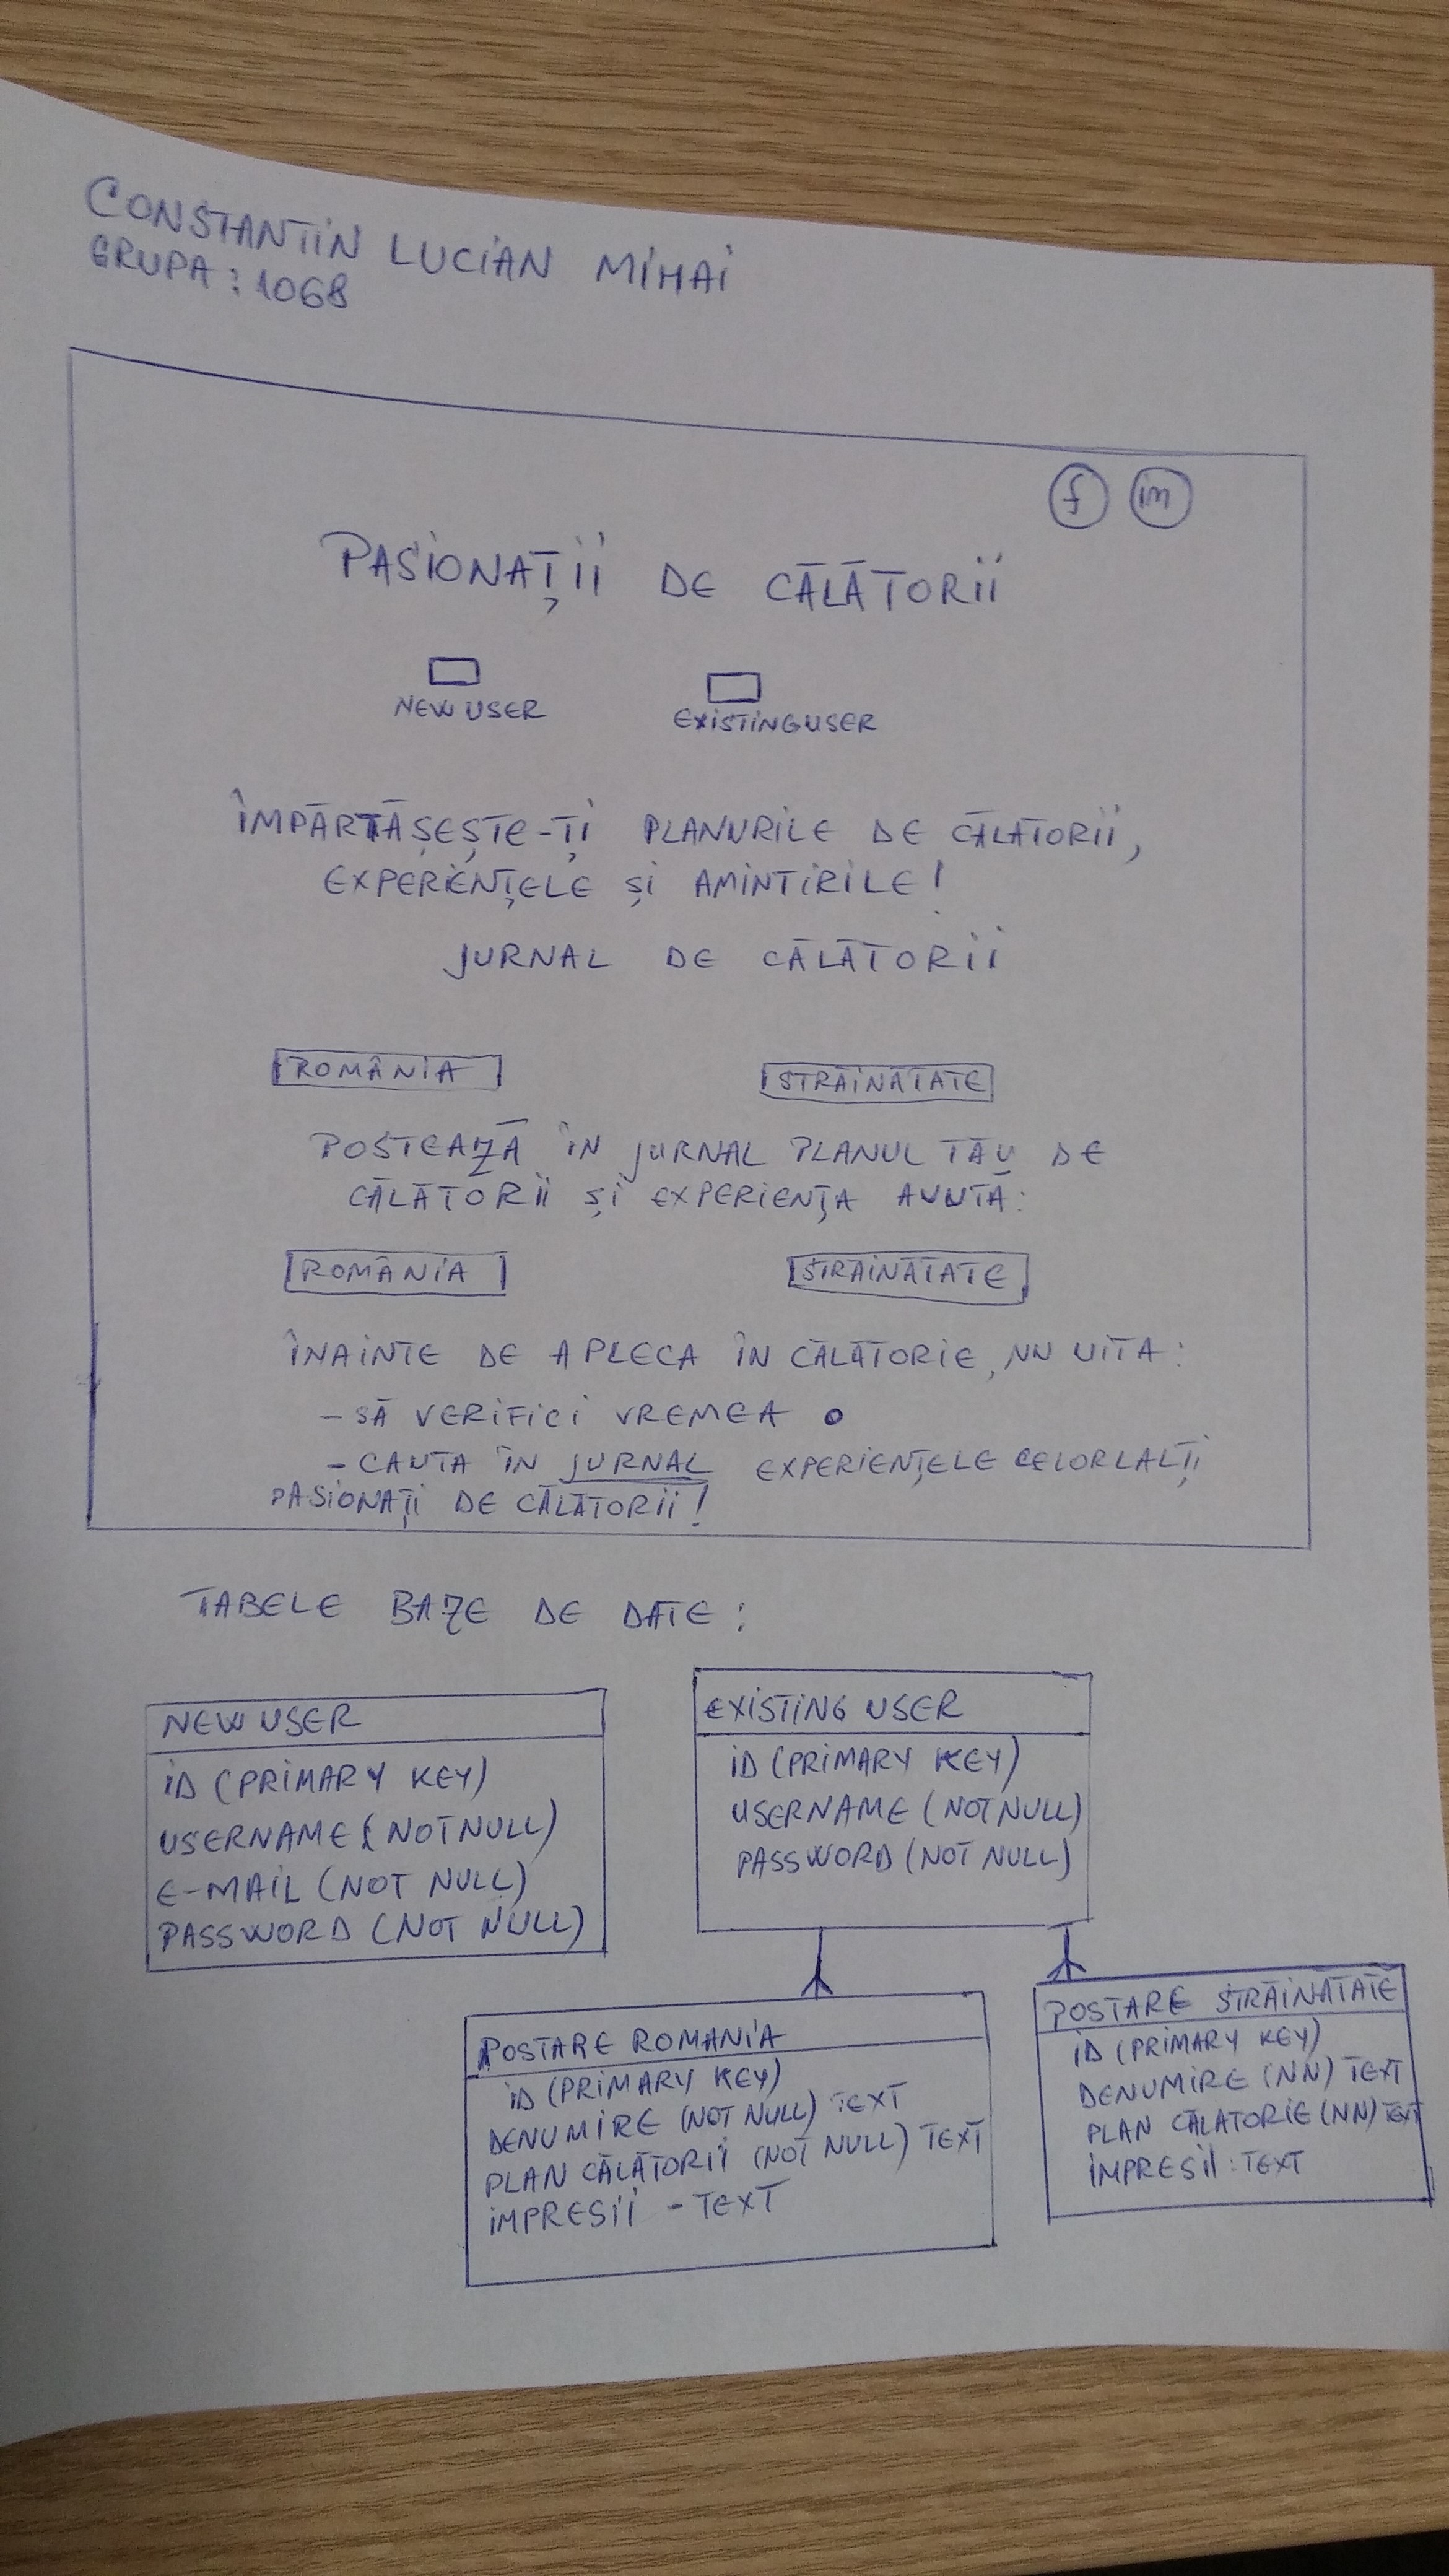 CONSTANTIN LUCIAN MIHAI
GRUPA: 1068
f in
PASIONAȚII DE CĂLĂTORII
NEW USER EXISTING USER
ÎMPĂRTĂȘEȘTE-ȚI PLANURILE DE CĂLĂTORII,
EXPERIENȚELE ȘI AMINTIRILE!
JURNAL DE CĂLĂTORII
ROMÂNIA STRĂINĂTATE
POSTEAZĂ ÎN JURNAL PLANUL TĂU DE
CĂLĂTORII ȘI EXPERIENȚA AVUTĂ:
ROMÂNIA STRĂINĂTATE
ÎNAINTE DE A PLECA ÎN CĂLĂTORIE, NU UITA:
- SĂ VERIFICI VREMEA
- CAUTA ÎN JURNAL EXPERIENȚELE CELORLALȚI
PASIONAȚI DE CĂLĂTORII!
TABELE BAZE DE DATE:
NEW USER
ID (PRIMARY KEY)
USERNAME (NOT NULL)
E-MAIL (NOT NULL)
PASSWORD (NOT NULL)
EXISTING USER
ID (PRIMARY KEY)
USERNAME (NOT NULL)
PASSWORD (NOT NULL)
POSTARE ROMANIA
ID (PRIMARY KEY)
DENUMIRE (NOT NULL) TEXT
PLAN CĂLĂTORII (NOT NULL) TEXT
IMPRESII - TEXT
POSTARE STRĂINĂTATE
ID (PRIMARY KEY)
DENUMIRE (NN) TEXT
PLAN CĂLATORIE (NN) TEXT
IMPRESII: TEXT